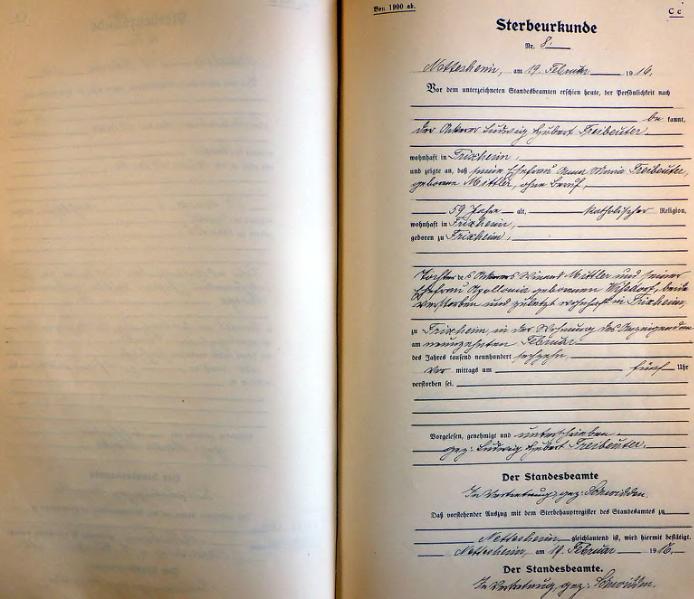 Von 1900 ab.
C c
Sterbeurkunde
Nr. 8.
Nettersheim, am 19. Februar 1916.
Vor dem unterzeichneten Standesbeamten erschien heute, der Persönlichkeit nach
be kannt,
der Ackerer Ludwig Hubert Freibeuter
wohnhaft in Frixheim,
und zeigte an, daß seine Ehefrau Anna Maria Freibeuter,
geborene Mittler, ohne Beruf,
59 Jahre alt, katholischer Religion,
wohnhaft in Frixheim,
geboren zu Frixheim,
Tochter des Ackerers Mittler und seiner
Ehefrau Apollonia geborenen beide
verstorben und zuletzt wohnhaft in Frixheim,
zu Frixheim, in der Wohnung des Anzeigenden
am neunzehnten Februar
des Jahres tausend neunhundert sechzehn
Vor mittags um fünf Uhr
verstorben sei.
Vorgelesen, genehmigt und unterschrieben.
gez. Ludwig Hubert Freibeuter.
Der Standesbeamte
In Vertretung, gez.
Daß vorstehender Auszug mit dem Sterbehauptregister des Standesamtes zu
gleichlautend ist, wird hiermit bestätigt.
am 19. Februar 1916.
Der Standesbeamte.
In Vertretung, gez.